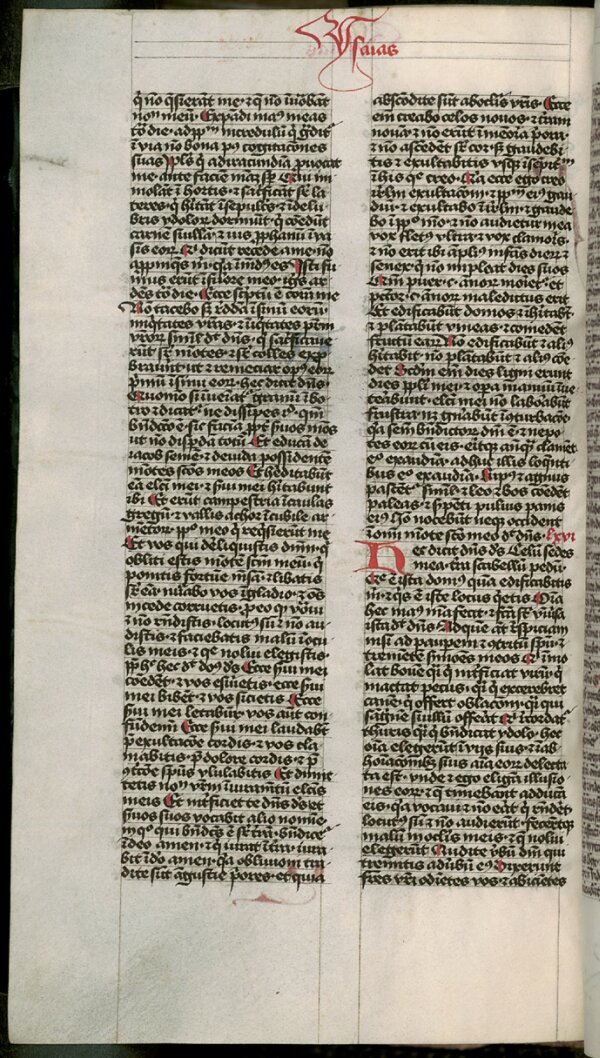 Ysaias
q̄ nō q̄sierāt me · ⁊ q̄ nō īuōbāt
nomē meū · Expādi ma⁹ meas
tō die · ad pp̄m īncredulū q̄ ḡdit̄
ī via nō bona pꝰ cogitacōnes
suas · Ppl̄s q̄ ad iracundiā ꝓuocat
me · ante faciē meā sꝑ Qui im
molāt ī hortis · ⁊ sac̄ficāt sꝑ la
teres · q̄ hītāt ī sepulc̄s · ⁊ ī delu
bris ydolorū dormiūt · q̄ cōedūt
carnē suillā · ⁊ ius ꝓphanū ī va
sis eorꝝ · Qī dicūt recede a me · nō
appīnq̄s m̄ · q̄a īmūdꝰ es · Isti fu
mus erūt ī furore meo · ignis ar
dēs tō die · Ecce sc̄ptū ē corā me
Nō tacebo sꝫ r̄ddā ī sinū eorū ·
iniq̄tates v̄ras · ⁊ iniq̄tates pr̄m
vr̄orꝝ simul dt̄ dn̄s · q̄ sac̄ficaue
rūt sꝑ mōtes · ⁊ sꝑ colles expꝓ
brauūt · vt ⁊ remeciar opꝰ eorꝝ
pͥmū ī sinu eorꝝ · hec dicit dn̄s ·
Quomō si īueniat̄ granū ī bo
tro ⁊ dicat̄ · ne dissipes id · qm̄
bn̄dicō ē · sic faciā ꝓpt̄ ẜuos meos
vt nō disꝑdā totū · Et educā de
iacob semē · ⁊ de iuda possidētē
mōtes scōs meos · Et he̅ditabūt
eā elc̄i mei · ⁊ ẜui mei hītabunt
ibi · Et erūt campestria ī caulas
gregū · ⁊ vallis achor ī cubile ar
mētorꝝ pp̄lo meo q̄ reqͥsierūt me
Et vos qui dereliquistis dn̄m · q̄
obliti estis mōtē scm̄ meū · q̄
ponitis fortūe mēsā · ⁊ libatis
sꝑ eā · nūabo vos ī gladio · ⁊ oēs
ī cede corruetis · ꝓ eo qͦ vocaui
⁊ nō rn̄distis · locutꝰ sū ⁊ nō au
distis · ⁊ faciebatis malū ī ocu
lis meis · ⁊ q̄ nolui elegistis ·
Ppt̄ h̄ hec dt̄ dn̄s ds̄ Ecce ẜui mei
cōedēt · ⁊ vos esuietis · ecce ẜui
mei bibēt · ⁊ vos scicietis · Ecce
ẜui mei letabūt̄ · vos aūt cōn
fūdemī · Ecce ẜui mei laudabūt
p̄ exultacōe cordis · ⁊ vos cla
mabitis · p̄ dolore cordis · ⁊ p̄
ꝯtricōe sp̄us vlulabitis · Et dimit
tetis nomē vr̄m ī iuramētū elc̄is
meis · Et int̄ficiet te dn̄s ds̄ · et
ẜuos suos vocabit alio nomīe ·
ī quo qui bn̄dcs̄ ē sꝑ tr̄ā · bn̄dicet̄
ī deo amen · ⁊ qui iurat ī tr̄ā · iura
bit ī do amen · q̄a obliuioni tra
dite sūt āgustie pͥores · et quia
absc̄odite sūt ab oculis vr̄is · Ecce
em̄ creabo celos nouos · ⁊ terrā
nouā · ⁊ nō erūt ī meōria pͥora ·
⁊ nō ascēdēt sꝑ cor · sꝫ gaudebi
tis ⁊ exultabitis vsqꝫ ī sēpit̄nū
ī his q̄ ego creo · Q̄a ecce ego creo
ir̄lm̄ exultacōnē · ⁊ pp̄m eiꝰ gau
diū · ⁊ exultabo ī ir̄lm̄ · ⁊ gaude
bo ī pp̄lo mō · ⁊ nō audiet̄ in ea
vox fletꝰ vltra · ⁊ vox clamoris ·
⁊ nō erit ibi āpliꝰ īfās dierꝝ ⁊
senex · q̄ nō īmpleat dies suos
Qm̄ puer · c · ānorꝝ moriet̄ · et
pctor̄ · c · ānorꝝ maledictus erit
Et edificabūt domos ⁊ ihītabūt
⁊ plātabūt vineas · ⁊ comedēt
fructū earꝝ · Nō edificabūt ⁊ aliꝰ
hītabit · nō plātabūt ⁊ aliꝰ cōe
det · Scd̄m em̄ dies ligni erunt
dies ppl̄i mei · ⁊ opa manuū eoꝝ in ue
terabunt · elc̄i mei nō laborabūt
frustra · nꝫ gn̄abūt ī ꝯturbacōe ·
q̄a semē bn̄dictorꝝ dn̄i ē · ⁊ nepo
tes eorꝝ cū eis · eritqꝫ an̄q̄ꝫ clamēt
eō exaudiā · adhuc illis loquēti
bus eō exaudiā · Lupꝰ ⁊ agnus
pascēt̄ simul · ⁊ leo ⁊ bos cōedēt
paleas · ⁊ sꝑpēti puluis panis
eiꝰ · Nō nocebūt neqꝫ occident
ī omī mōte scō meo dt̄ dn̄s · lxvi
Hec dicit dn̄s ds̄ Celū sedes
mea · tr̄a scabellū pedū ·
Qͤ ē ista domꝰ quā edificabitis
m̄ · ⁊ q̄s ē iste locus q̄etis · Oīa
hec manꝰ mea fecit · ⁊ fc̄a sūt vniuˀsa
ista dt̄ dn̄s · Ad quē aūt respiciam
nisi ad pauꝑem ⁊ ꝯtritū spū · ⁊
tremētē ẜmōes meos · Qͥ īmo
lat bouē · q̄si q̄ int̄ficiat virū · q̄
mactat pecus · q̄si q̄ excerebret
canē · q̄ offert oblacōnē · q̄si qui
sāguinē suillū offerat · Qͥ recordat̄
thuris · q̄si q̄ bn̄dicat ydolo · hec
oīa elegerūt ī vijs suis · ⁊ ī ab
hoīacōibꝫ suis aīa eorꝝ delecta
ta est · vnde ⁊ ego eligā illusio
nes eorꝝ · ⁊ q̄ timebant adducā
eis · q̄a vocaui ⁊ nō erat q̄ rn̄det̄ ·
locutꝰ sū ⁊ nō audierūt · fecertq̄ꝫ
malū ī oculis meis · ⁊ q̄ nolui
elegerūt · Audite v̄bū dn̄i qui
tremitis ad ūbū eiꝰ · Dixerunt
fr̄es vr̄i odiētes vos · ⁊ abiciētes